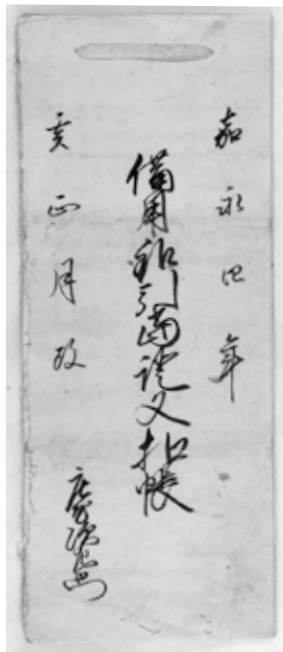 嘉永四年
備用銀引當證文扣帳
亥正月改